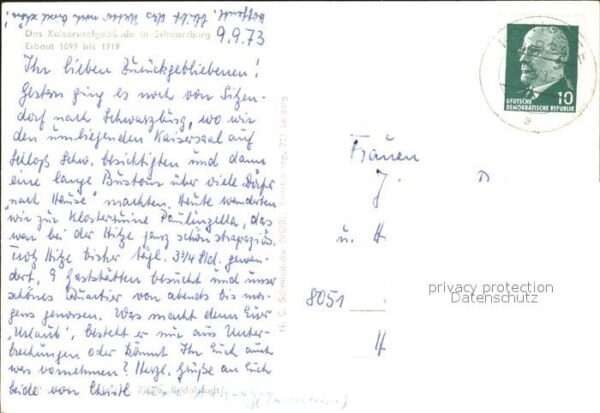 hoffentl. ist das Wetter auch schön!
Das Kaisersaalgebäude in Schwarzburg
Erbaut 1699 bis 1719
9.9.73
Ihr lieben Zurückgebliebenen!
Gestern ging es noch von Sitzen-
dorf nach Schwarzburg, wo wir
den umliegenden Kaisersaal auf
Schloß Schw. besichtigten und dann
eine lange Bustour über viele Dörfer
"nach Hause" machten. Heute wanderten
wir zur Klosterruine Paulinzella, das
war bei der Hitze ganz schön strapaziös.
Trotz Hitze bisher tägl. 3¾ Std. gewan-
dert, 9 Gaststätten besucht und unser
schönes Quartier von abends bis mor-
gens genossen. Was macht denn Euer
"Urlaub", besteht er nur aus Unter-
brechungen oder könnt Ihr Euch auch
was vornehmen? Herzl. Grüße an Euch
beide von Christl
Rudolstadt
H. C. Schmiedicke (VOB), Kunstverlag, 701 Leipzig
DEUTSCHE
DEMOKRATISCHE REPUBLIK
10
a
Frauen
J. D
u. H
8051
H
privacy protection
Datenschutz